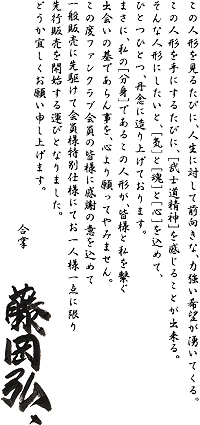 この人形を見るたびに、人生に対して前向きな、力強い希望が湧いてくる。
この人形を手にするたびに、【武士道精神】を感じることが出来る。
そんな人形にしたいと、【気】と【魂】と【心】を込めて、
ひとつひとつ、丹念に造り上げております。
まさに、私の【分身】であるこの人形が、皆様と私を繋ぐ
出会いの基であらん事を、心より願ってやみません。
この度ファンクラブ会員の皆様に感謝の意を込めて
一般販売に先駆けて会員様特別仕様にてお一人様一点に限り
先行販売を開始する運びとなりました。
どうか宜しくお願い申し上げます。
合掌
藤岡弘、